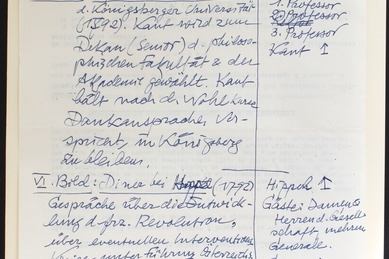 d. Königsberger Universität
(1792). Kant wird zum
Dekan (Senior) d. philoso-
phischen Fakultät a der
Akademie gewählt. Kant
hält nach d. Wahl kurze
Dankansprache, ver-
spricht, in Königsberg
zu bleiben.
1. Professor
2. Professor
3. Professor
Kant ↑
VI. Bild: Diner bei Hippel (1792)
Gespräche über die Entwick-
lung d. frz. Revolution,
über eventuellen Interventions
unter Führung Österreichs
Hippel ↑
Gäste: Damen u
Herren d. Gesell-
schaft mehrere
Generale.